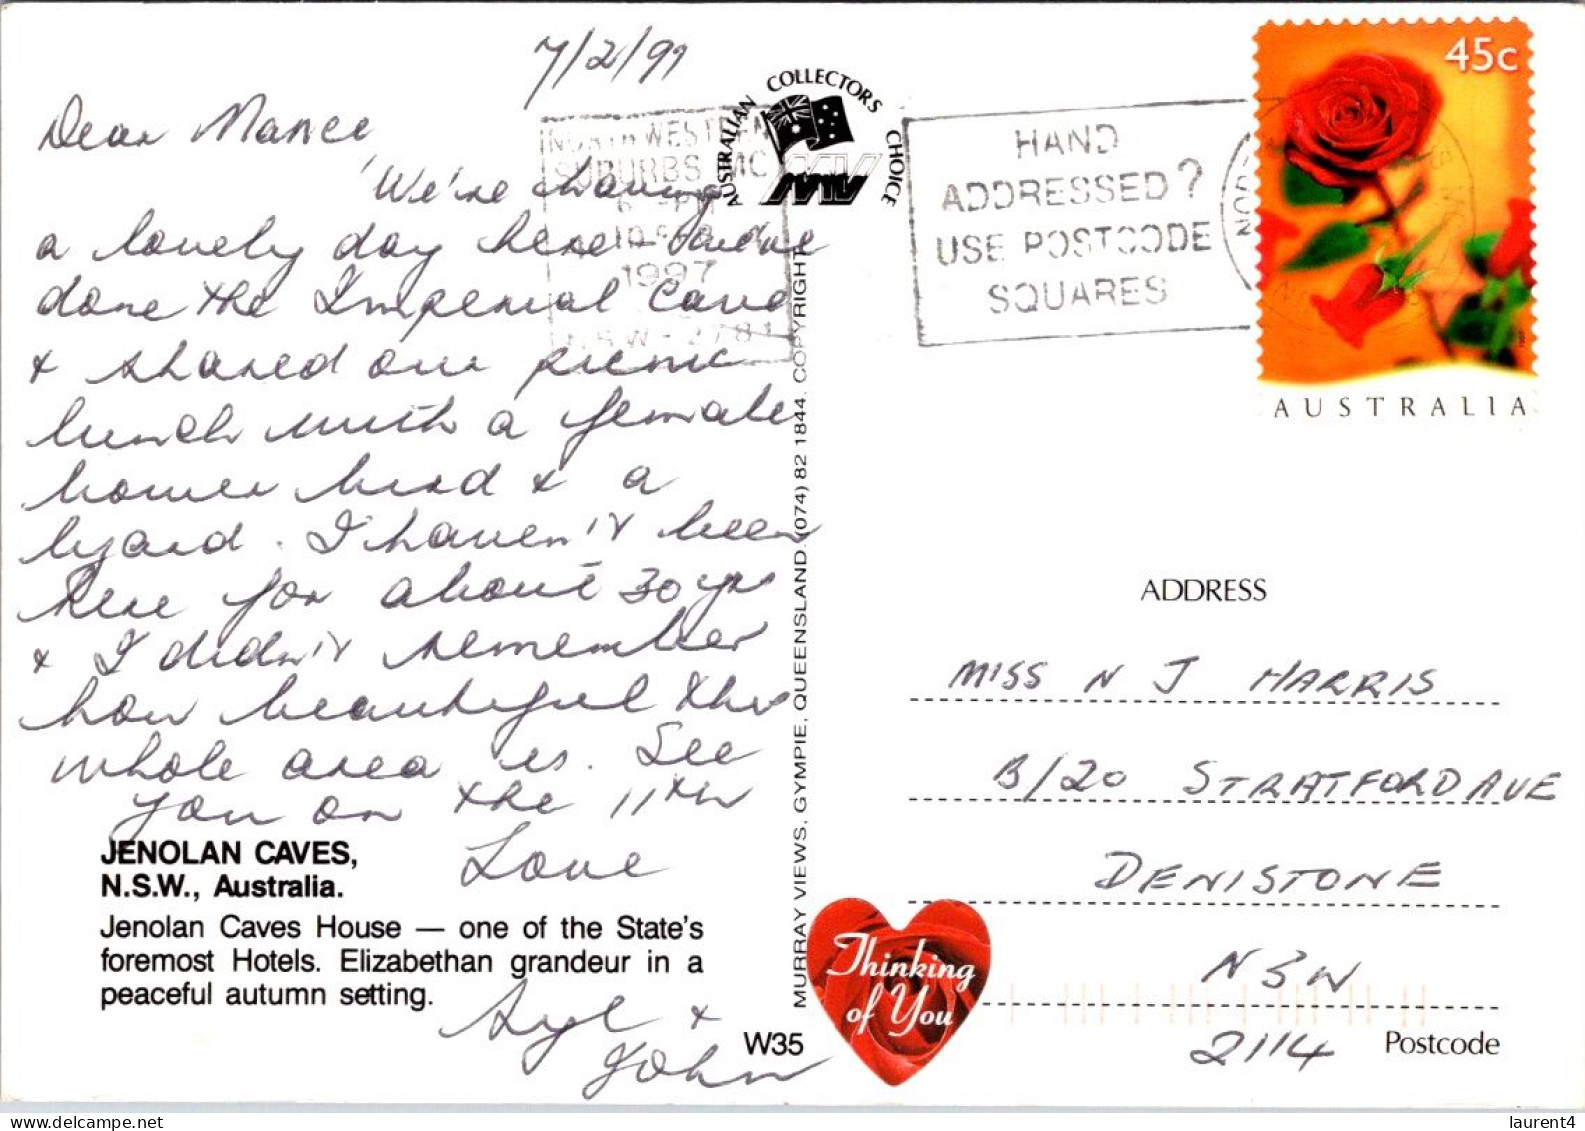 7/2/97
Dear Nance
We're having
a lovely day here - have
done the Imperial Cave
& shared our picnic
lunch with a female
bower bird & a
lizard. I haven't been
here for about 30 yrs
& I didn't remember
how beautiful this
whole area is. See
you on the 11th
Love
Syl &
John
JENOLAN CAVES,
N.S.W., Australia.
Jenolan Caves House — one of the State's
foremost Hotels. Elizabethan grandeur in a
peaceful autumn setting.
W35
AUSTRALIAN COLLECTORS CHOICE
MV
NORTH WESTERN
SUBURBS MC
6 PM
1997
N.S.W - 2781
MURRAY VIEWS, GYMPIE, QUEENSLAND. (074) 82 1844. COPYRIGHT
HAND
ADDRESSED?
USE POSTCODE
SQUARES
45c
AUSTRALIA
ADDRESS
MISS N J HARRIS
B/20 STRATFORD AVE
DENISTONE
NSW
2114 Postcode
Thinking
of You
laurent4